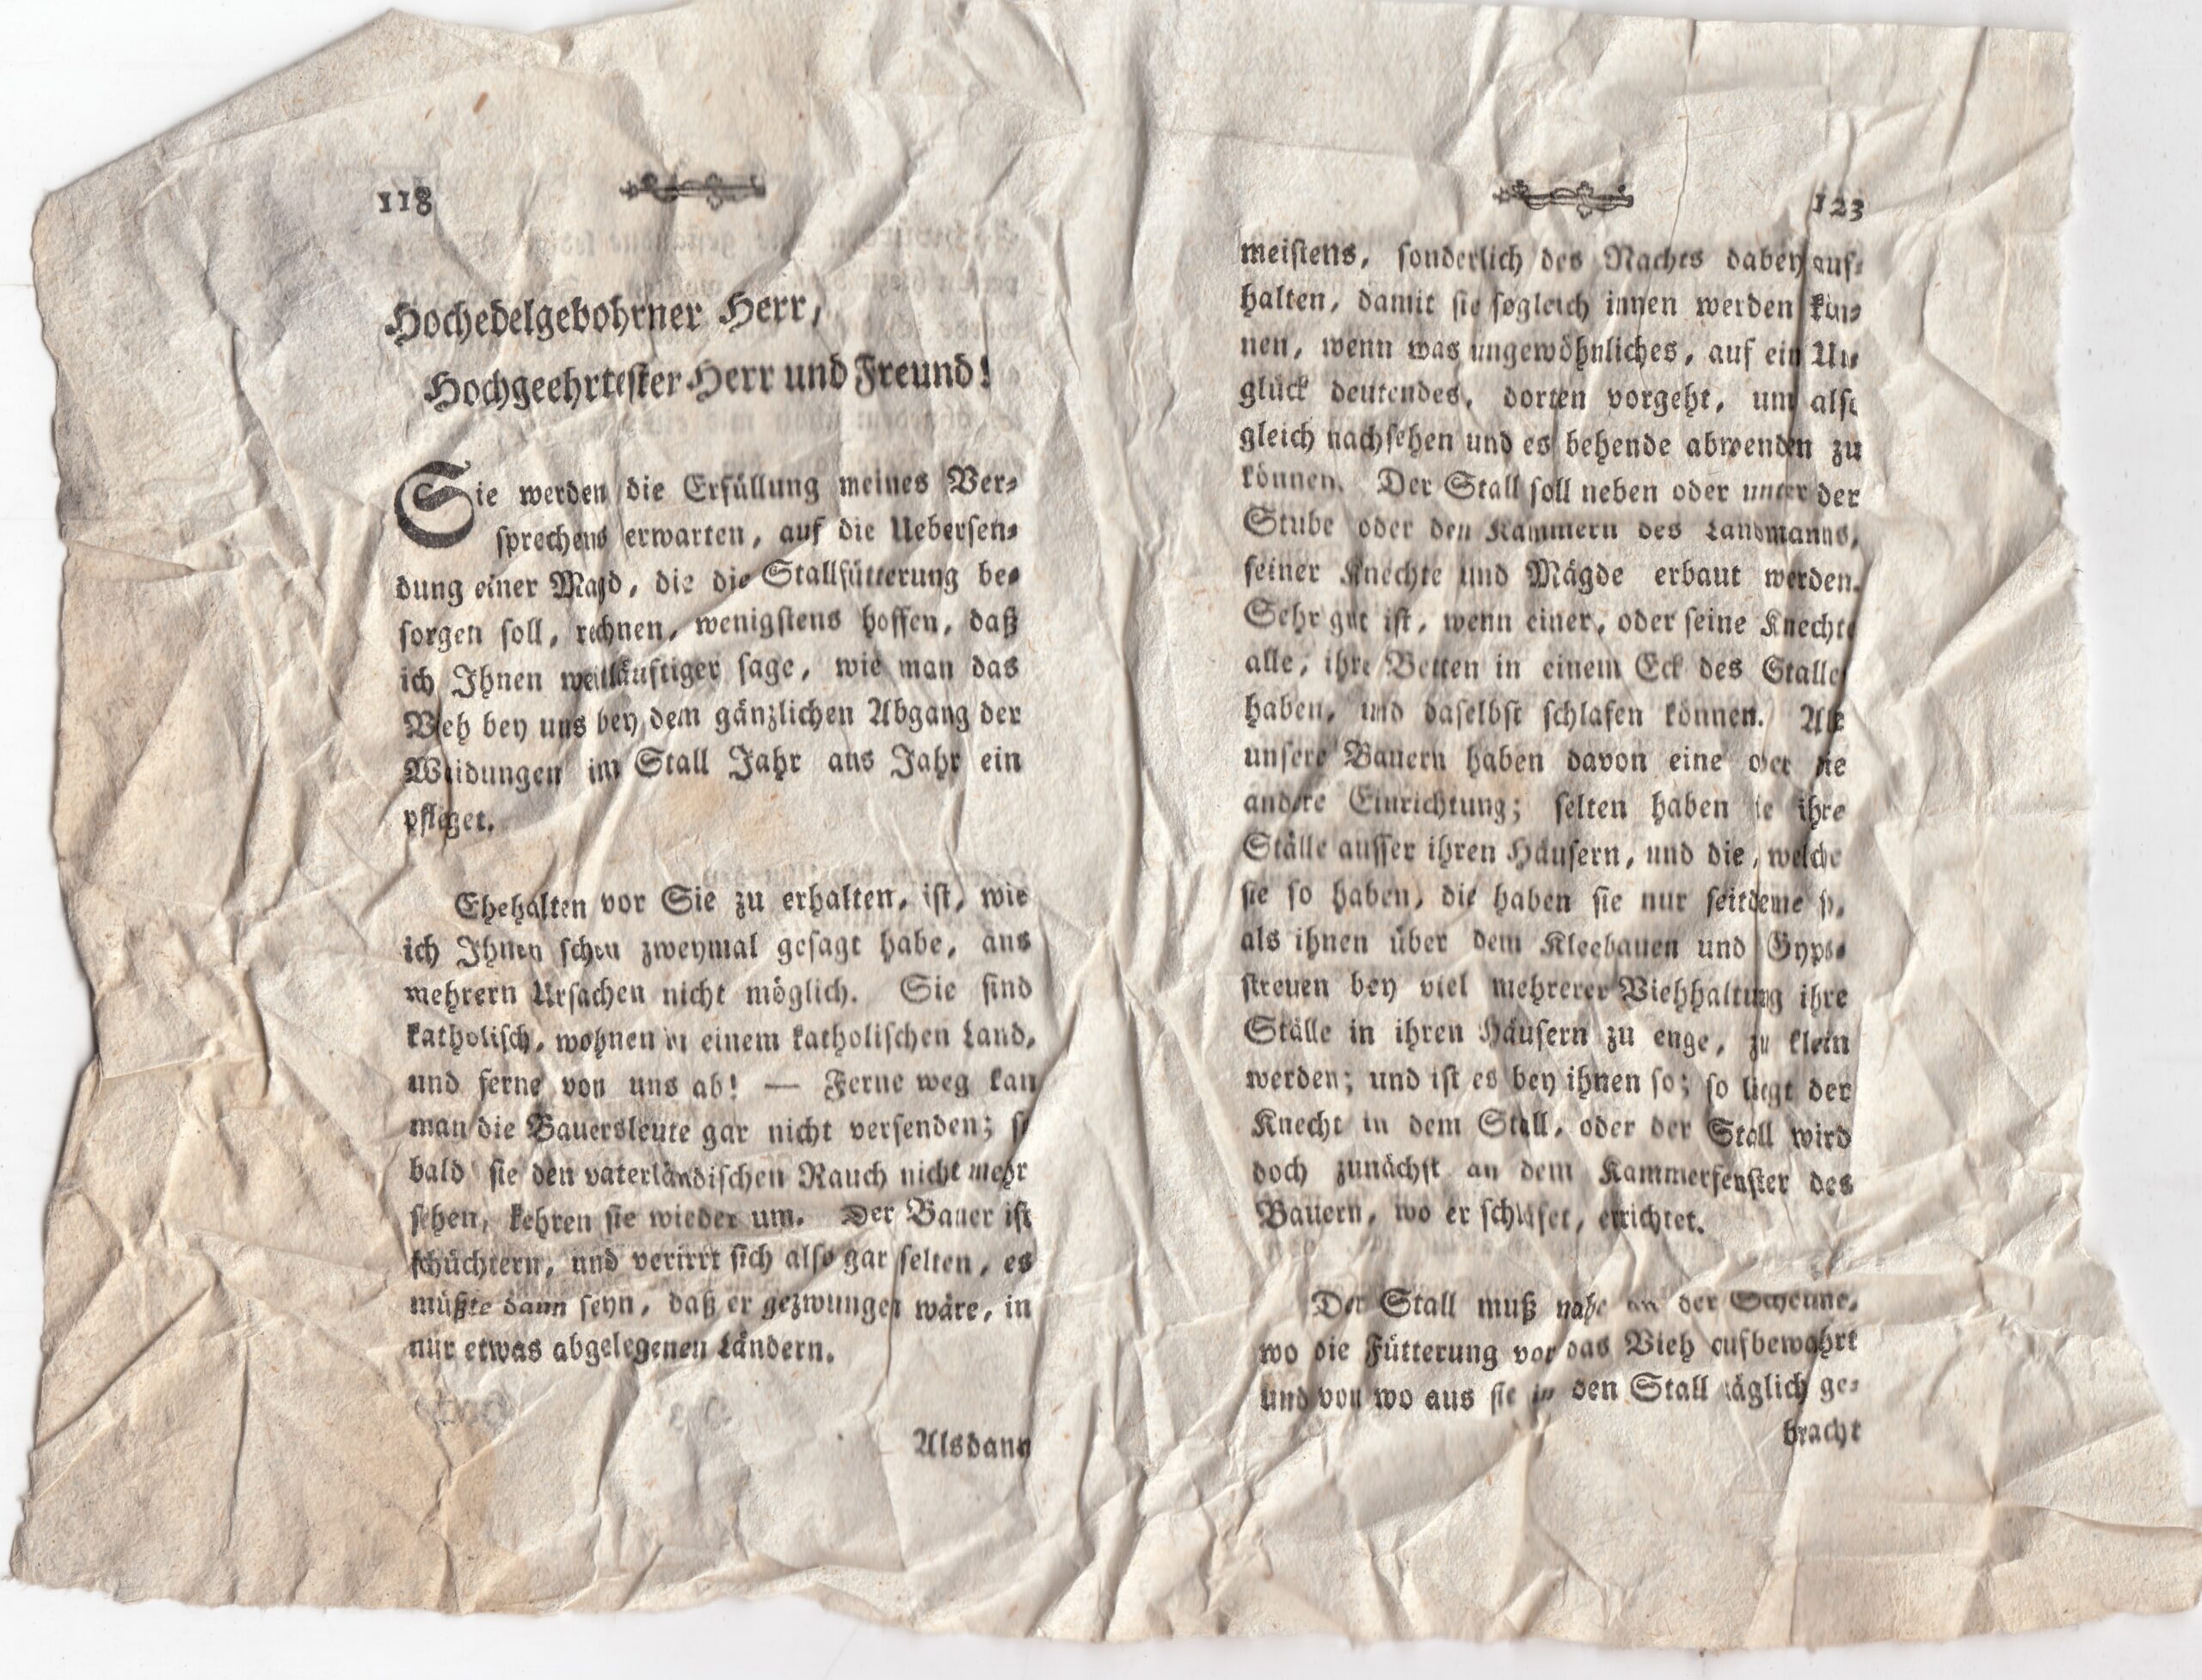 118
Hochedelgebohrner Herr,
Hochgeehrtester Herr und Freund!
Sie werden die Erfüllung meines Ver-
sprechens erwarten, auf die Uebersen-
dung einer Magd, die die Stallfütterung be-
sorgen soll, rechnen, wenigstens hoffen, daß
ich Ihnen weitläuftiger sage, wie man das
Vieh bey uns bey dem gänzlichen Abgang der
Weidungen im Stall Jahr aus Jahr ein
pfleget.
Ehehalten vor Sie zu erhalten, ist, wie
ich Ihnen schon zweymal gesagt habe, aus
mehrern Ursachen nicht möglich. Sie sind
katholisch, wohnen in einem katholischen Land,
und ferne von uns ab! — Ferne weg kan
man die Bauersleute gar nicht versenden; so
bald sie den vaterländischen Rauch nicht mehr
sehen, kehren sie wieder um. Der Bauer ist
schüchtern, und verirrt sich also gar selten, es
müßte dann seyn, daß er gezwungen wäre, in
nur etwas abgelegenen Ländern.
Alsdann
123
meistens, sonderlich des Nachts dabey auf-
halten, damit sie sogleich innen werden kön-
nen, wenn was ungewöhnliches, auf ein Un-
glück deutendes, dorten vorgeht, um also
gleich nachsehen und es behende abwenden zu
können. Der Stall soll neben oder unter der
Stube oder den Kammern des Landmanns,
seiner Knechte und Mägde erbaut werden.
Sehr gut ist, wenn einer, oder seine Knechte
alle, ihre Betten in einem Eck des Stalles
haben, und daselbst schlafen können. Alle
unsere Bauern haben davon eine oder die
andere Einrichtung; selten haben sie ihre
Ställe ausser ihren Häusern, und die, welche
sie so haben, die haben sie nur seitdeme so,
als ihnen über dem Kleebauen und Gyps-
streuen bey viel mehrerer Viehhaltung ihre
Ställe in ihren Häusern zu enge, zu klein
werden; und ist es bey ihnen so; so liegt der
Knecht in dem Stall, oder der Stall wird
doch zunächst an dem Kammerfenster des
Bauern, wo er schläfet, errichtet.
Der Stall muß nahe an der Scheune,
wo die Fütterung vor das Vieh aufbewahrt
und von wo aus sie in den Stall täglich ge-
bracht